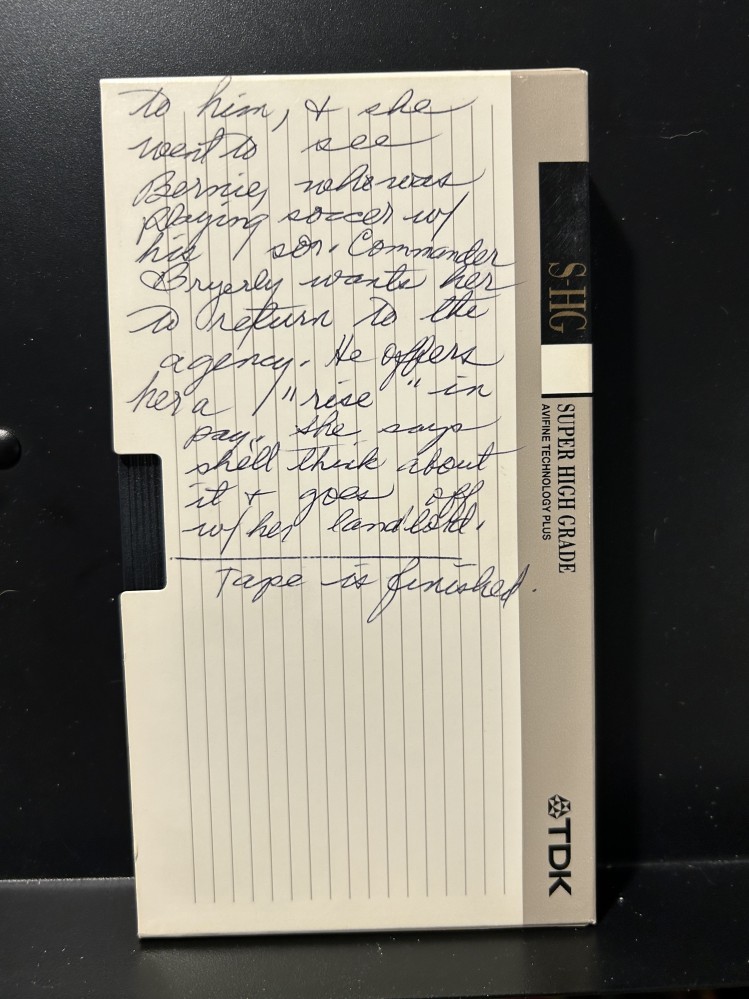 to him, & she
went to see
Bernie, who was
playing soccer w/
his son. Commander
Bryerly wants her
to return to the
agency. He offers
her a "rise" in
pay. She says
she'll think about
it & goes off
w/ her landlord.
Tape is finished.
S-HG
SUPER HIGH GRADE
AVIFINE TECHNOLOGY PLUS
TDK